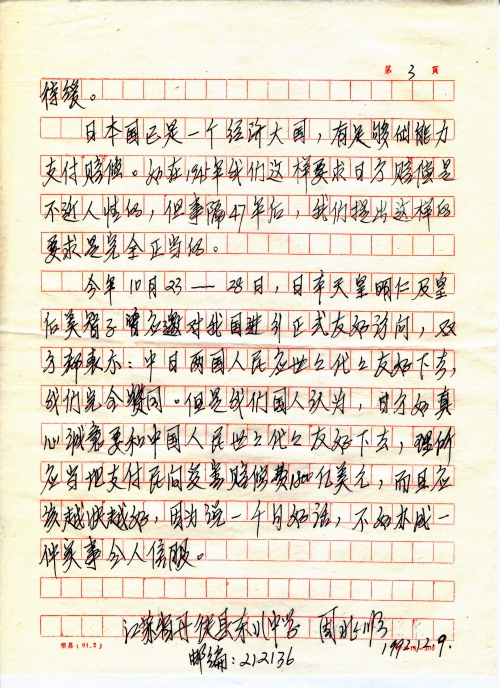 第 3 页
待缓。
日本国已是一个经济大国，有足够的能力
支付赔偿。如在1945年我们这样要求日方赔偿是
不近人性的，但事隔47年后，我们提出这样的
要求是完全正当的。
今年10月23—28日，日本天皇明仁及皇
后美智子曾应邀对我国进行正式友好访问，双
方都表示：中日两国人民应世世代代友好下去，
我们完全赞同。但是我们国人认为，日方如真
心诚意要和中国人民世世代代友好下去，理所
应当地支付民间受害赔偿费1800亿美元，而且应
该越快越好，因为说一千句好话，不如办成一
件实事令人信服。
江苏省丹徒县 中学 周
邮编：212136 1992.12.9.